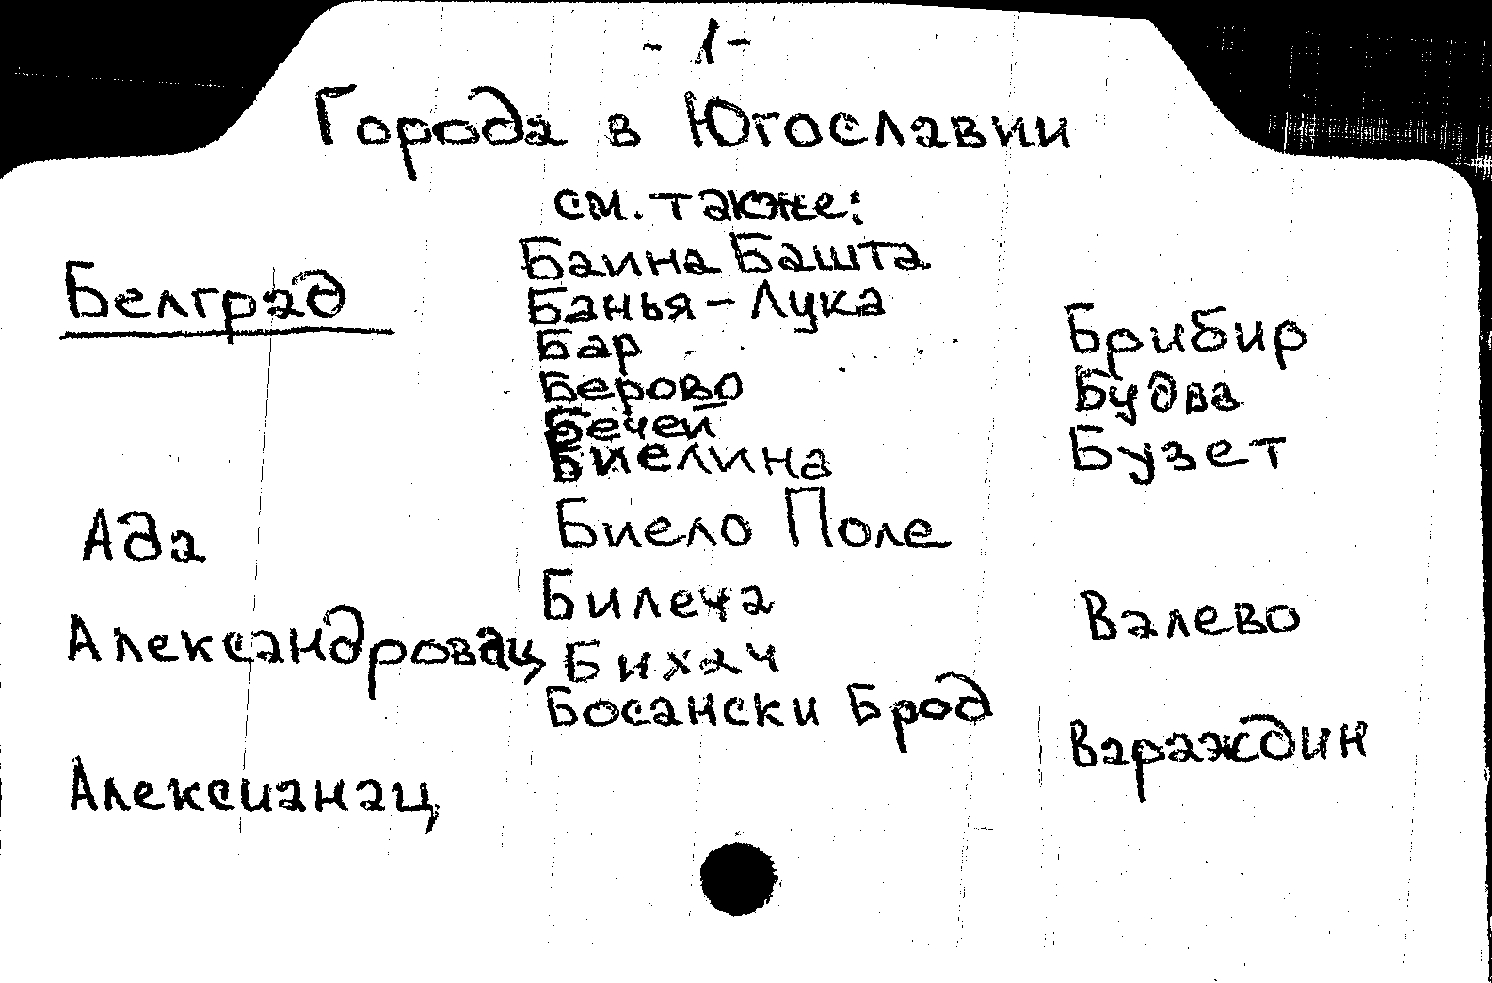 - 1 -
Города в Югославии
см. также:
Белград
Ада
Александровац
Алексианац
Баина Башта
Банья-Лука
Бар
Берово
Бечей
Биелина
Биело Поле
Билеча
Бихач
Босански Брод
Брибир
Будва
Бузет
Валево
Вараждин